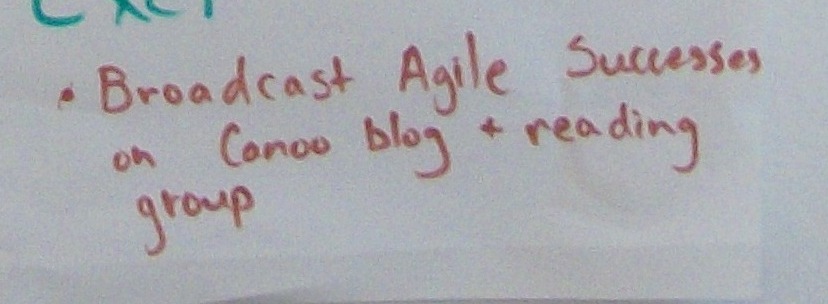 • Broadcast Agile Successes
on Canoo blog + reading
group